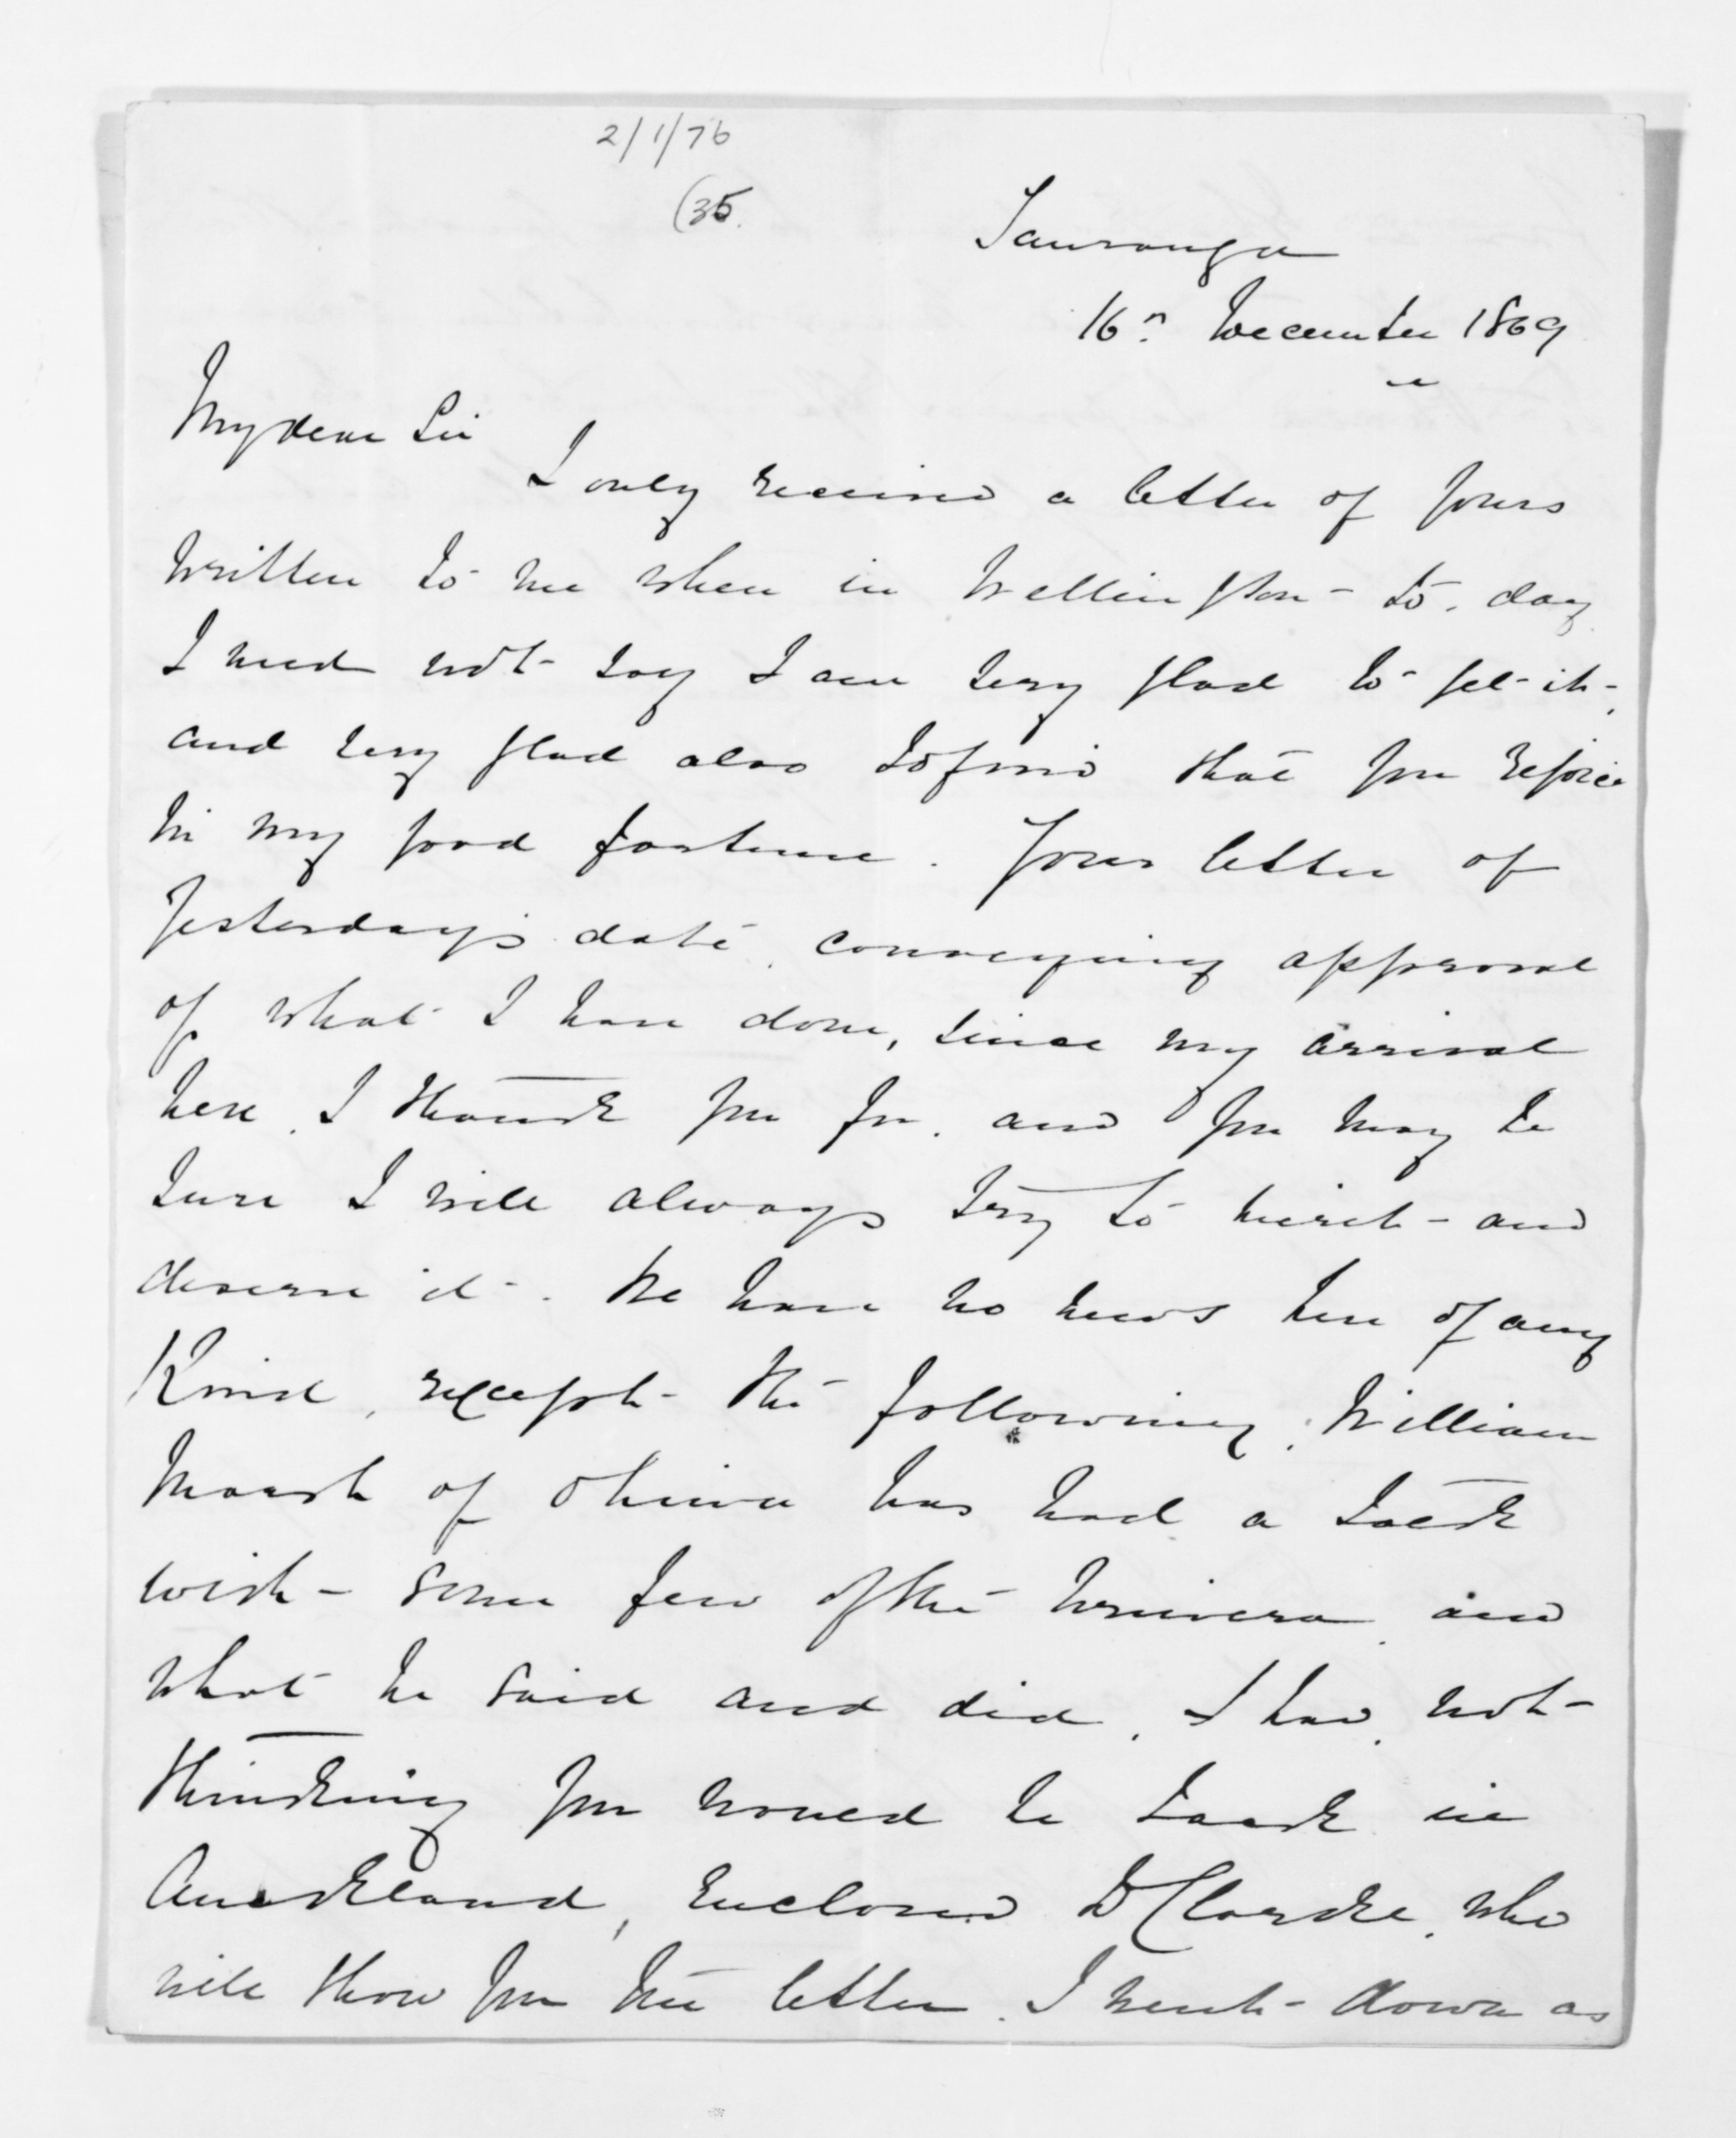 2/1/76
(35.
Tauranga
16th December 1869
My dear Sir
I only received a letter of yours
written to me when in Wellington - to day
I need not say I am very glad to get it,
and very glad also to find that you rejoice
in my good fortune. Your letter of
Yesterday's date, conveying approval
of what I have done, since my arrival
here, I thank you for, and you may be
sure I will always try to merit and
deserve it. We have no news here of any
Kind, except the following. William
Marsh of Ohiwa has had a talk
with some few of the Urewera, and
what he said and did, I have, not
thinking you would be back in
Auckland, enclosed to Clarke, who
will show you the letter. I went down as